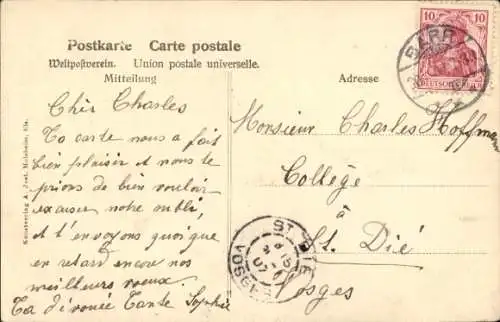 Postkarte Carte postale
Weltpostverein. Union postale universelle.
Mitteilung
Adresse
Chèr Charles
Ta carte nous a fait
bien plaisir et nous te
prions de bien vouloir
excuser notre oubli,
et t'envoyons quoique
en retard encore nos
meilleurs voeux
Ta dévouée Tante Sophie
Monsieur Charles Hoffmann
Collège
à
St. Dié
Vosges
Kunstverlag A. Jost, Molsheim, Els.
10 10
DEUTSCHES REICH
BARR
ST DIÉ
VOSGES
07